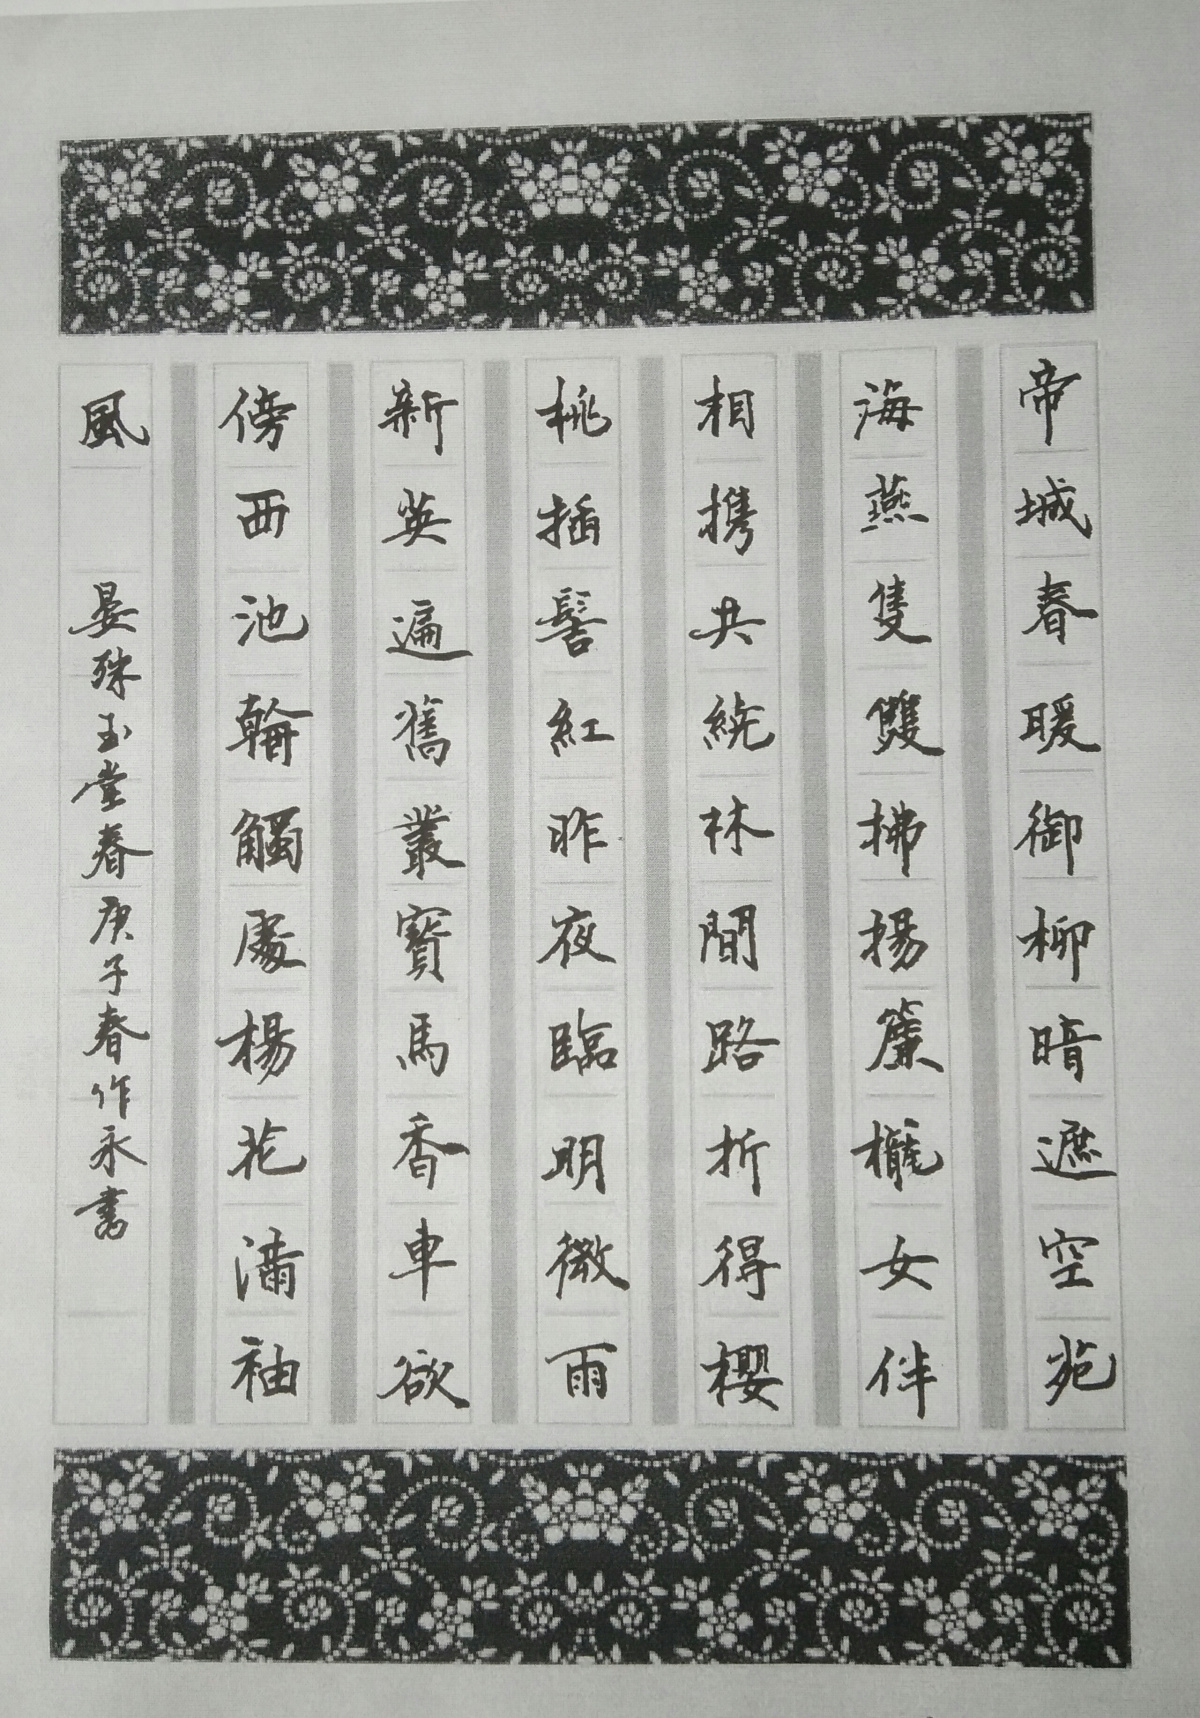 帝城春暖御柳暗遮空苑
海燕隻雙拂揚簾櫳女伴
相攜共繞林間路折得櫻
桃插髻紅昨夜臨明微雨
新英遍舊叢寶馬香車欲
傍西池輪觸處楊花滿袖
風 晏殊玉堂春庚子春作永書